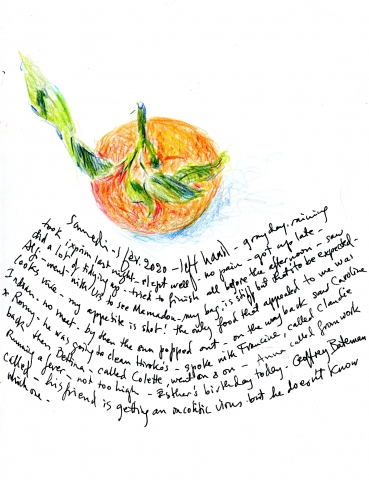 Samedi - 1 fev. 2020 - left hand - gray day. raining
took 1 xprim last night - slept well - no pain - got up late -
did a lot of tidying up - tried to finish all before the afternoon - saw
Ali - went with US to see Mamadou - my bag is stiff but that is to be expected -
looks like - my appetite is shot! the only food that appealed to me was
Ichben. no meat - by then the sun popped out - on the way back saw Caroline
* Romy - he was going to clean Hiroko's - spoke with Francine, called Claudie
back then Detlina - called Colette, went on & on - Anne called from work
Running a fever - not too high - Esther's birthday today - Geoffrey Bateman
called - his friend is getting an oncolitic virus but he doesn't know
which one -